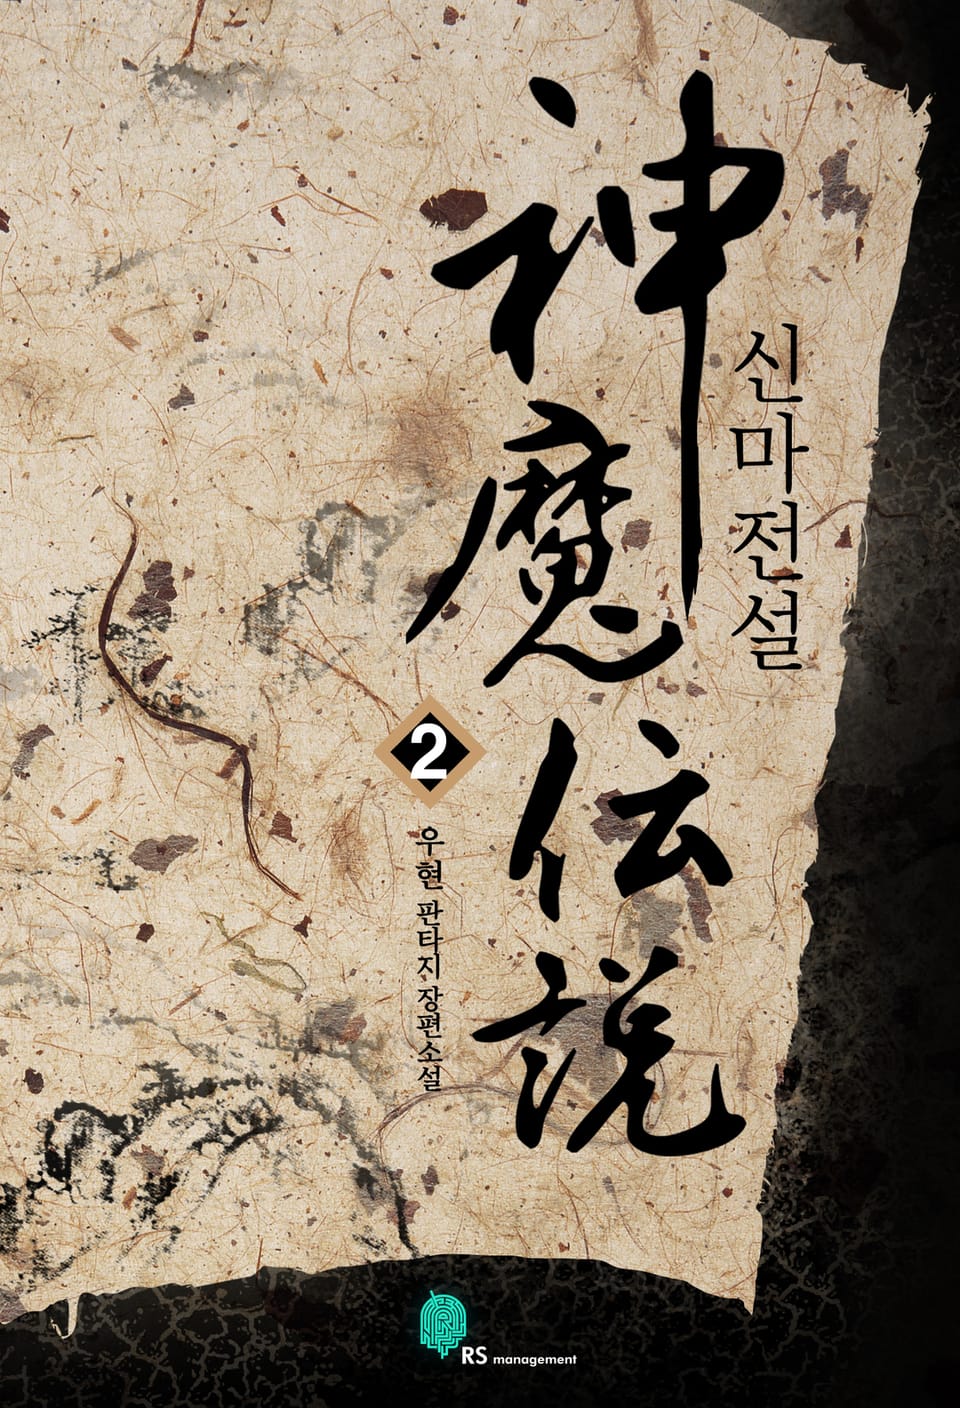 神魔伝説
신마전설
2
우현 판타지 장편소설
RS management